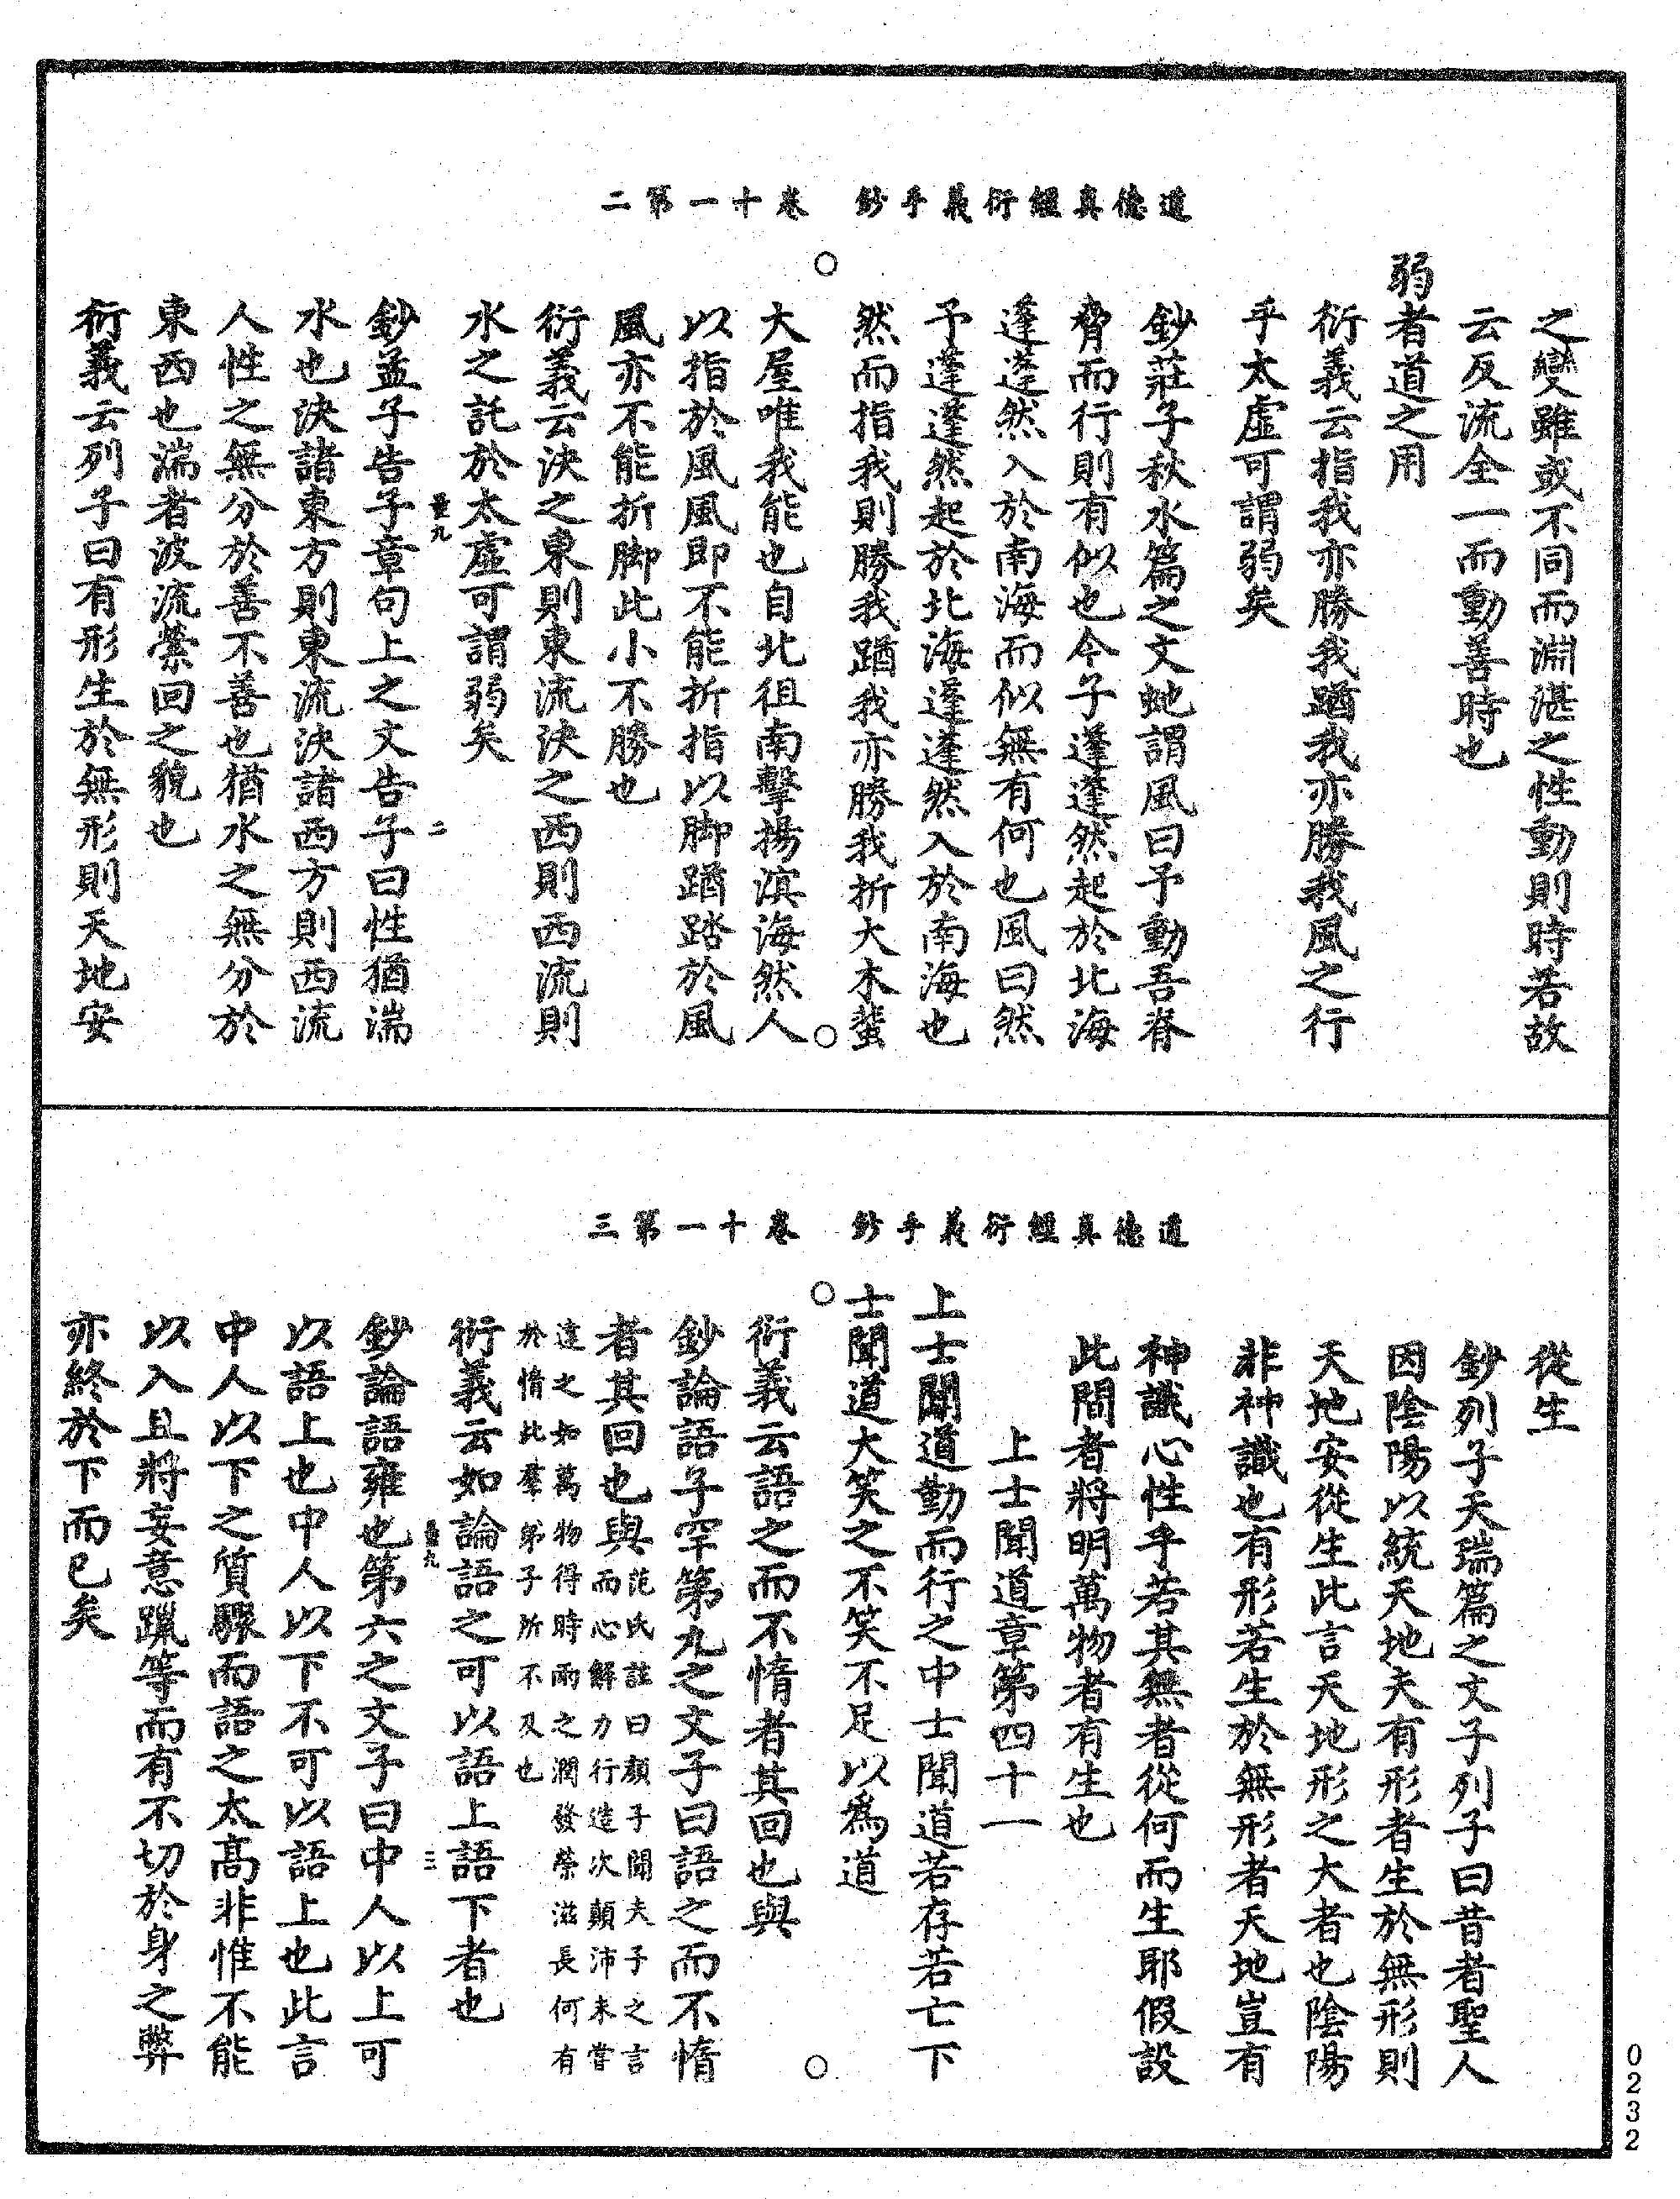 道德真經衍義手鈔　卷十一第二
之變雖或不同而淵湛之性動則時若故
云反流全一而動善時也
弱者道之用
衍義云指我亦勝我䠓我亦勝我風之行
乎太虛可謂弱矣
鈔莊子秋水篇之文虵謂風曰予動吾脊
脅而行則有似也今子蓬蓬然起於北海
蓬蓬然入於南海而似無有何也風曰然
予蓬蓬然起於北海蓬蓬然入於南海也
然而指我則勝我䠓我亦勝我折大木蜚
大屋唯我能也自北徂南擊揚溟海然人
以指於風風即不能折指以脚䠓踏於風
風亦不能折脚此小不勝也
衍義云決之東則東流決之西則西流則
水之託於太虛可謂弱矣
鈔孟子告子章句上之文告子曰性猶湍
水也決諸東方則東流決諸西方則西流
人性之無分於善不善也猶水之無分於
東西也湍者波流縈回之貌也
衍義云列子曰有形生於無形則天地安
道德真經衍義手鈔　卷十一第三
從生
鈔列子天瑞篇之文子列子曰昔者聖人
因陰陽以統天地夫有形者生於無形則
天地安從生此言天地形之大者也陰陽
非神識也有形若生於無形者天地豈有
神識心性乎若其無者從何而生耶假設
此問者將明萬物者有生也
上士聞道章第四十一
上士聞道勤而行之中士聞道若存若亡下
士聞道大笑之不笑不足以爲道
衍義云語之而不惰者其回也與
鈔論語子罕第九之文子曰語之而不惰
者其回也與范氏註曰顏子聞夫子之言
而心解力行造次顛沛未嘗
違之如萬物得時雨之潤發榮滋長何有
於惰此羣弟子所不及也
衍義云如論語之可以語上語下者也
鈔論語雍也第六之文子曰中人以上可
以語上也中人以下不可以語上也此言
中人以下之質驟而語之太高非惟不能
以入且將妄意躐等而有不切於身之弊
亦終於下而已矣
0232